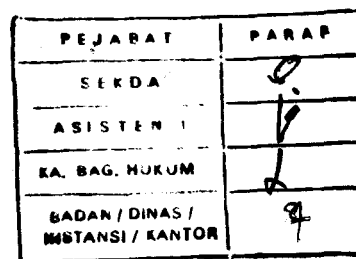 PEJABAT PARAF
SEKDA
ASISTEN 1
KA. BAG. HUKUM
BADAN / DINAS /
INSTANSI / KANTOR